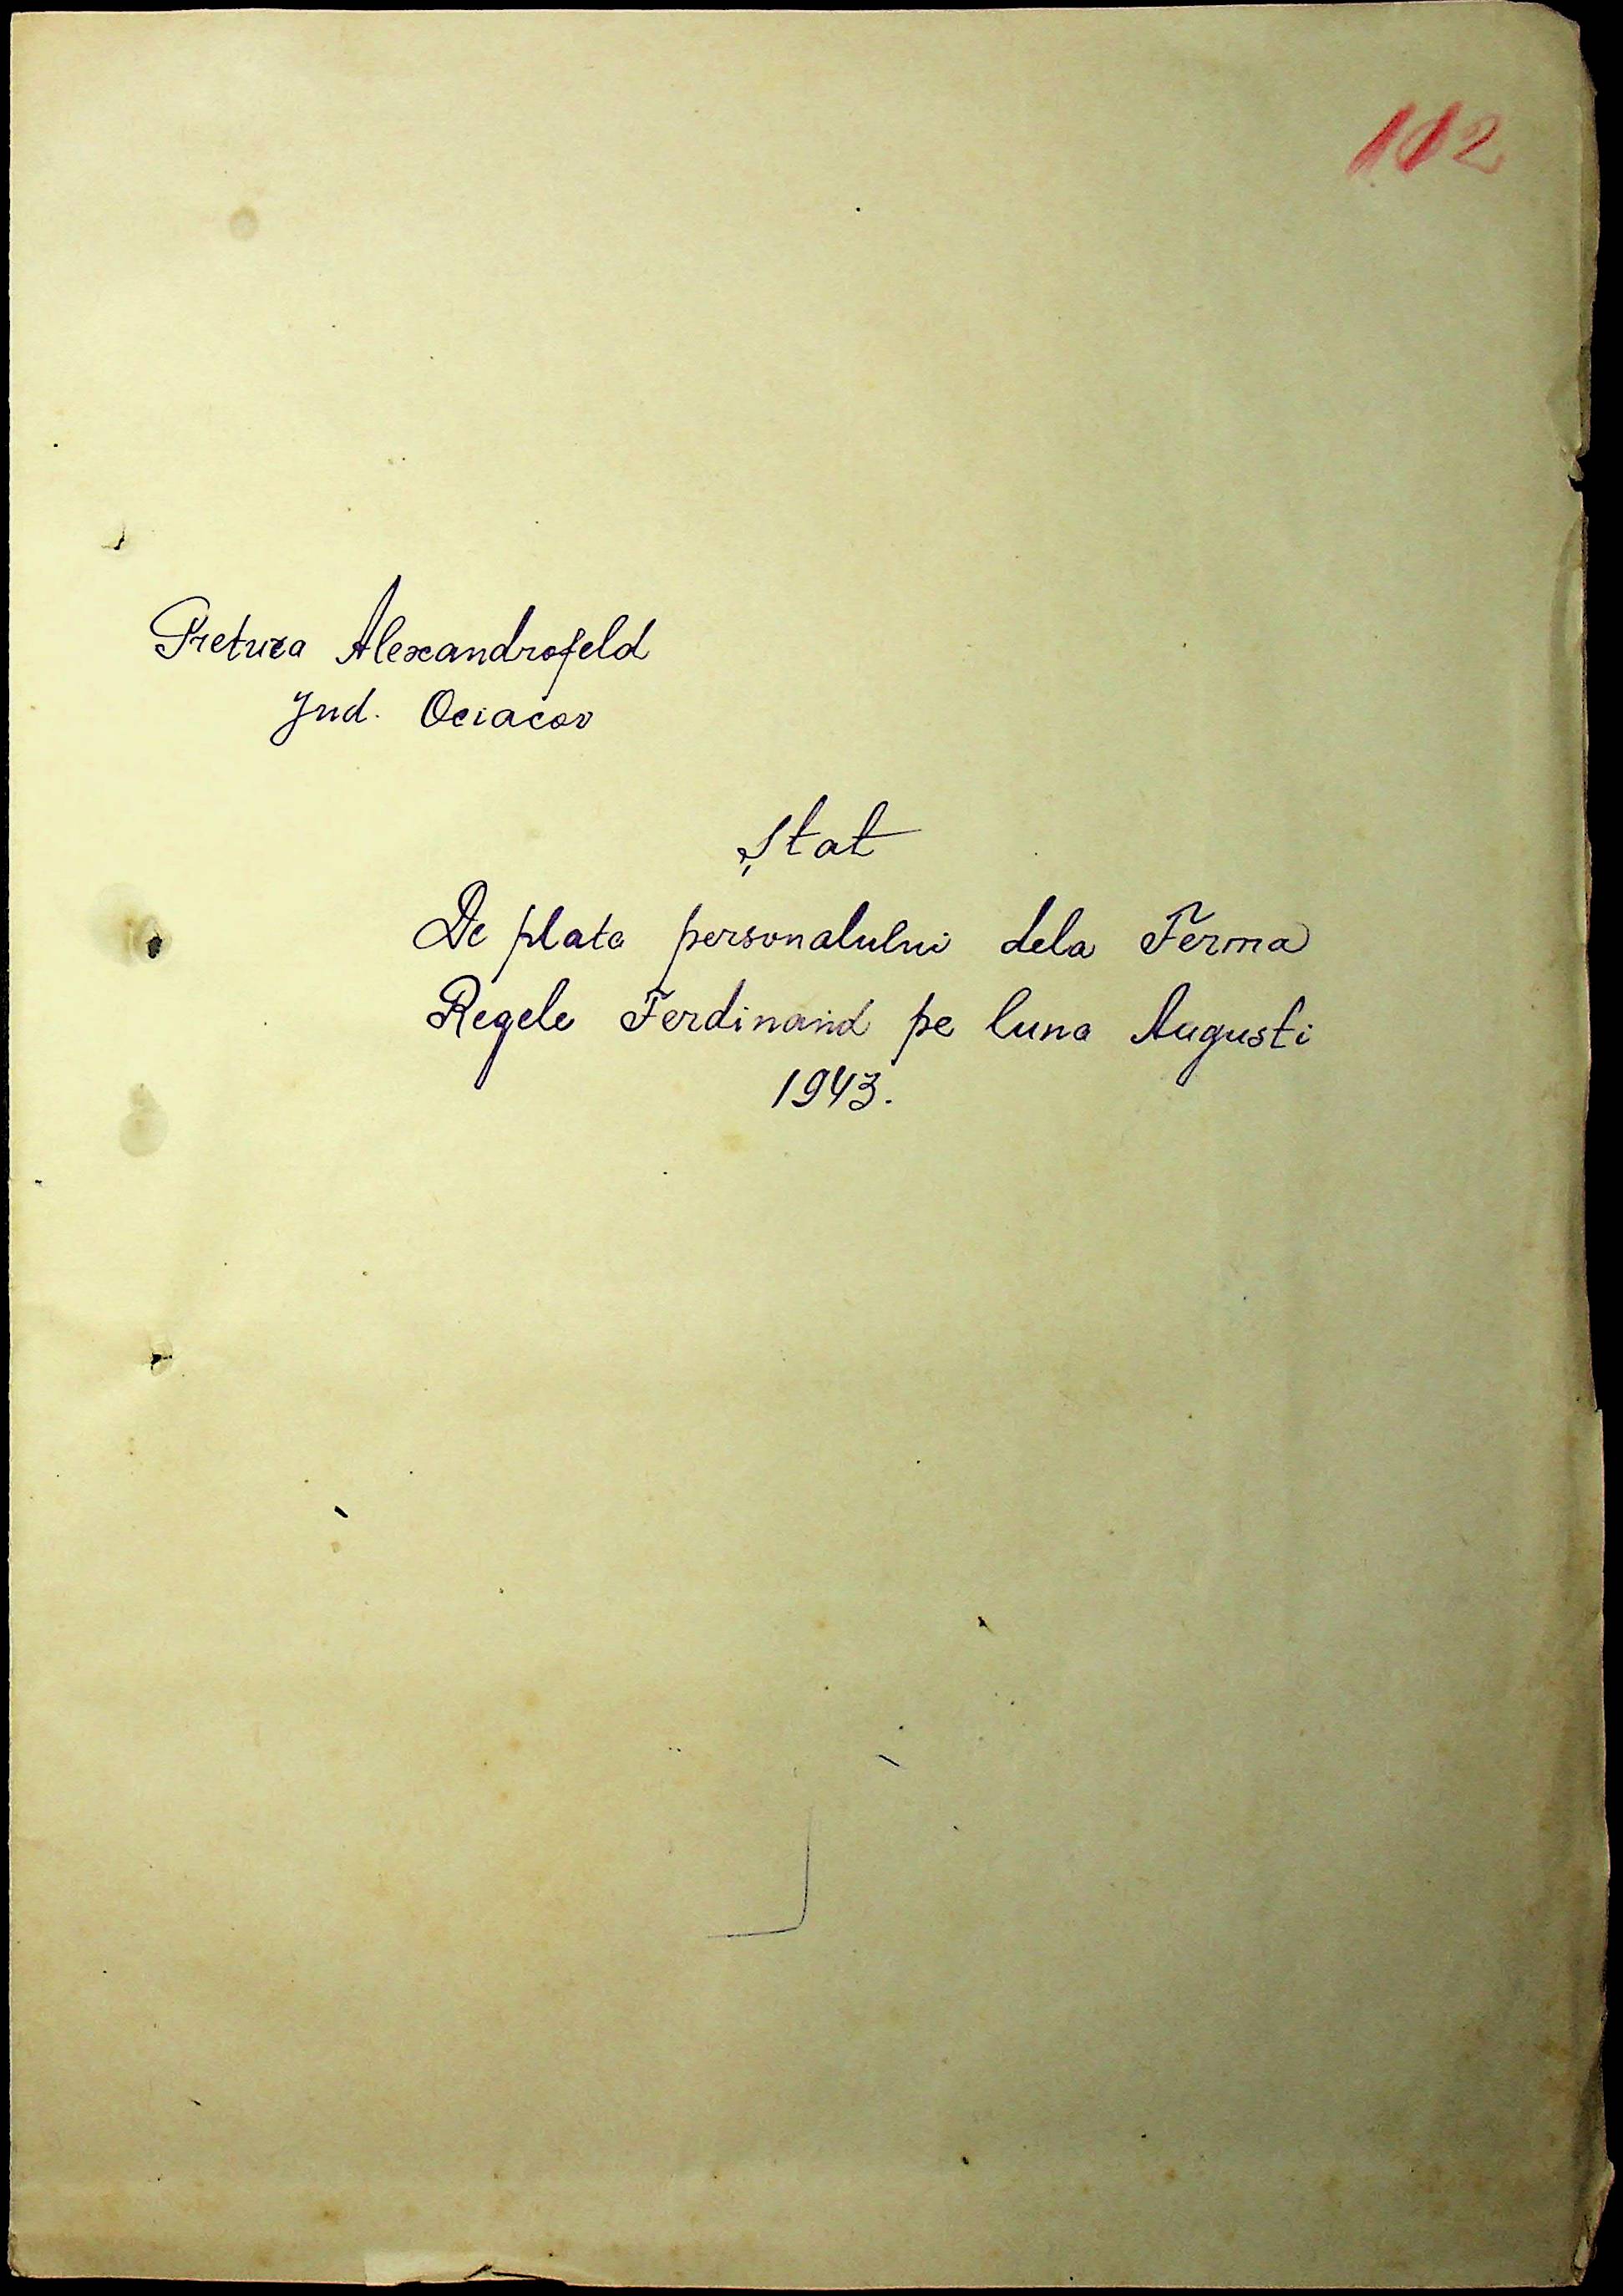 112
Pretura Alexandrofeld
Jud. Ociacov
Ștat
De plata personalului dela Ferma
Regele Ferdinand pe luna Augusti
1943.